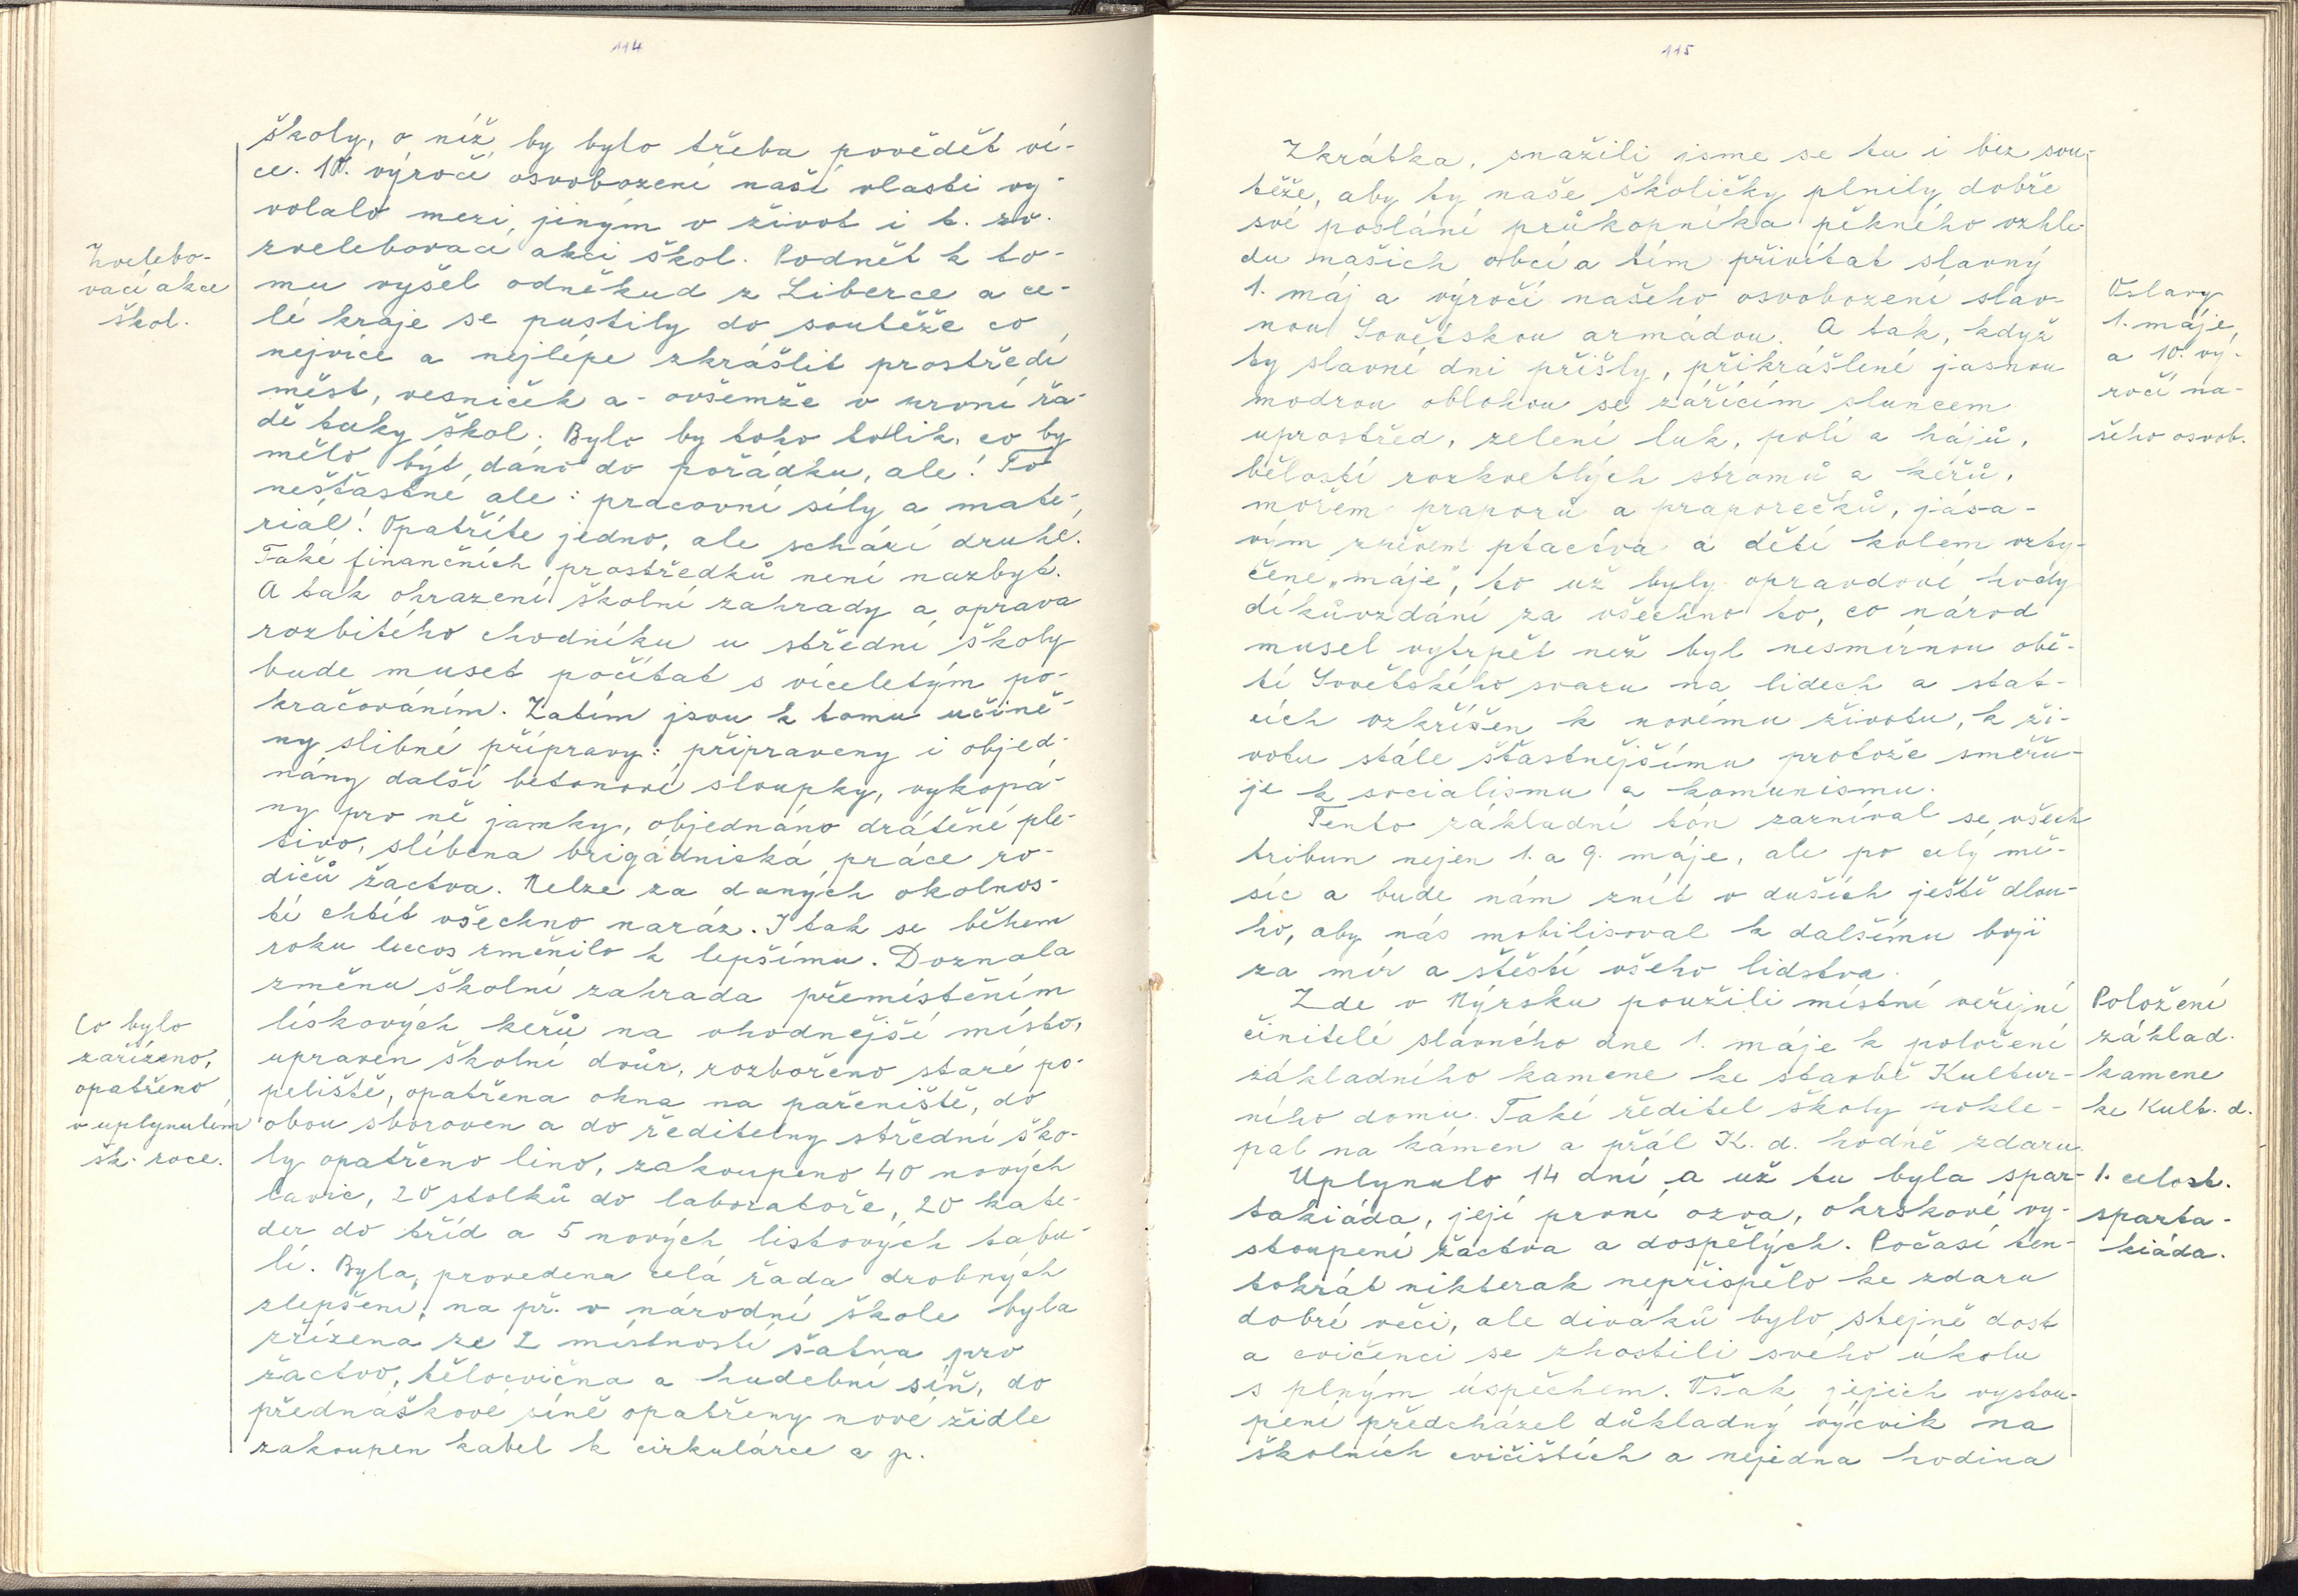 114
školy, o níž by bylo třeba povědět ví-
ce. 10. výročí osvobození naší vlasti vy-
volalo mezi jiným v život i t. zv.
zvelebovací akci škol. Podnět k to-
Zvelebo-
vací akce
škol.
mu vyšel odněkud z Liberce a ce-
lé kraje se pustily do soutěže co
nejvíce a nejlépe zkrášlit prostředí
měst, vesniček a - ovšemže v první řa-
dě taky škol. Bylo by toho tolik, co by
mělo být dáno do pořádku, ale! To
nešťastné ale: pracovní síly a mate-
riál! Opatříte jedno, ale schází druhé.
Také finančních prostředků není nazbyt.
A tak ohrazení školní zahrady a oprava
rozbitého chodníku u střední školy
bude muset počítat s víceletým po-
kračováním. Zatím jsou k tomu učině-
ny slibné přípravy: připraveny i objed-
nány další betonové sloupky, vykopá-
ny pro ně jamky, objednáno drátěné ple-
tivo, slíbena brigádnická práce ro-
dičů žactva. Nelze za daných okolnos-
tí chtít všechno naráz. I tak se během
roku leccos změnilo k lepšímu. Doznala
změnu školní zahrada přemístěním
lískových keřů na vhodnější místo,
Co bylo
zařízeno,
opatřeno
v uplynulém
šk. roce.
upraven školní dvůr, rozbořeno staré po-
peliště, opatřena okna na pařeniště, do
obou sboroven a do ředitelny střední ško-
ly opatřeno lino, zakoupeno 40 nových
lavic, 20 stolků do laboratoře, 20 kate-
der do tříd a 5 nových listových tabu-
lí. Byla provedena celá řada drobných
zlepšení, na př. v národní škole byla
zřízena ze 2 místností šatna pro
žactvo, tělocvična a hudební síň, do
přednáškové síně opatřeny nové židle
zakoupen kabel k cirkulárce a p.
115
Zkrátka, snažili jsme se tu i bez sou-
těže, aby ty naše školičky plnily dobře
své poslání průkopníka pěkného vzhle-
du našich obcí a tím přivítat slavný
1. máj a výročí našeho osvobození slav-
nou Sovětskou armádou. A tak, když
ty slavné dni přišly, přikrášlené jasnou
modrou oblohou se zářícím sluncem
uprostřed, zelení luk, polí a hájů,
Oslavy
1. máje
a 10. vý-
ročí na-
šeho osvob.
bělostí rozkvetlých stromů a keřů,
mořem praporů a praporečků, jása-
vým zpěvem ptactva a dětí kolem vzty-
čené „máje", to už byly opravdové hody
díkůvzdání za všechno to, co národ
musel vytrpět než byl nesmírnou obě-
tí Sovětského svazu na lidech a stat-
cích vzkříšen k novému životu, k ži-
votu stále šťastnějšímu protože směřu-
je k socialismu a komunismu.
Tento základní tón zazníval se všech
tribun nejen 1. a 9. máje, ale po celý mě-
síc a bude nám znít v duších ještě dlou-
ho, aby nás mobilisoval k dalšímu boji
za mír a štěstí všeho lidstva.
Zde v Nýrsku použili místní veřejní
činitelé slavného dne 1. máje k položení
základního kamene ke stavbě Kultur-
ního domu. Také ředitel školy pokle-
pal na kámen a přál K. d. hodně zdaru.
Položení
základ.
kamene
ke Kult. d.
Uplynulo 14 dní a už tu byla spar-
takiáda, její první ozva, okrskové vy-
stoupení žactva a dospělých. Počasí ten-
1. celost.
sparta-
kiáda.
tokrát nikterak nepřispělo ke zdaru
dobré věci, ale diváků bylo stejně dost
a cvičenci se zhostili svého úkolu
s plným úspěchem. Však jejich vystou-
pení předcházel důkladný výcvik na
školních cvičištích a nejedna hodina